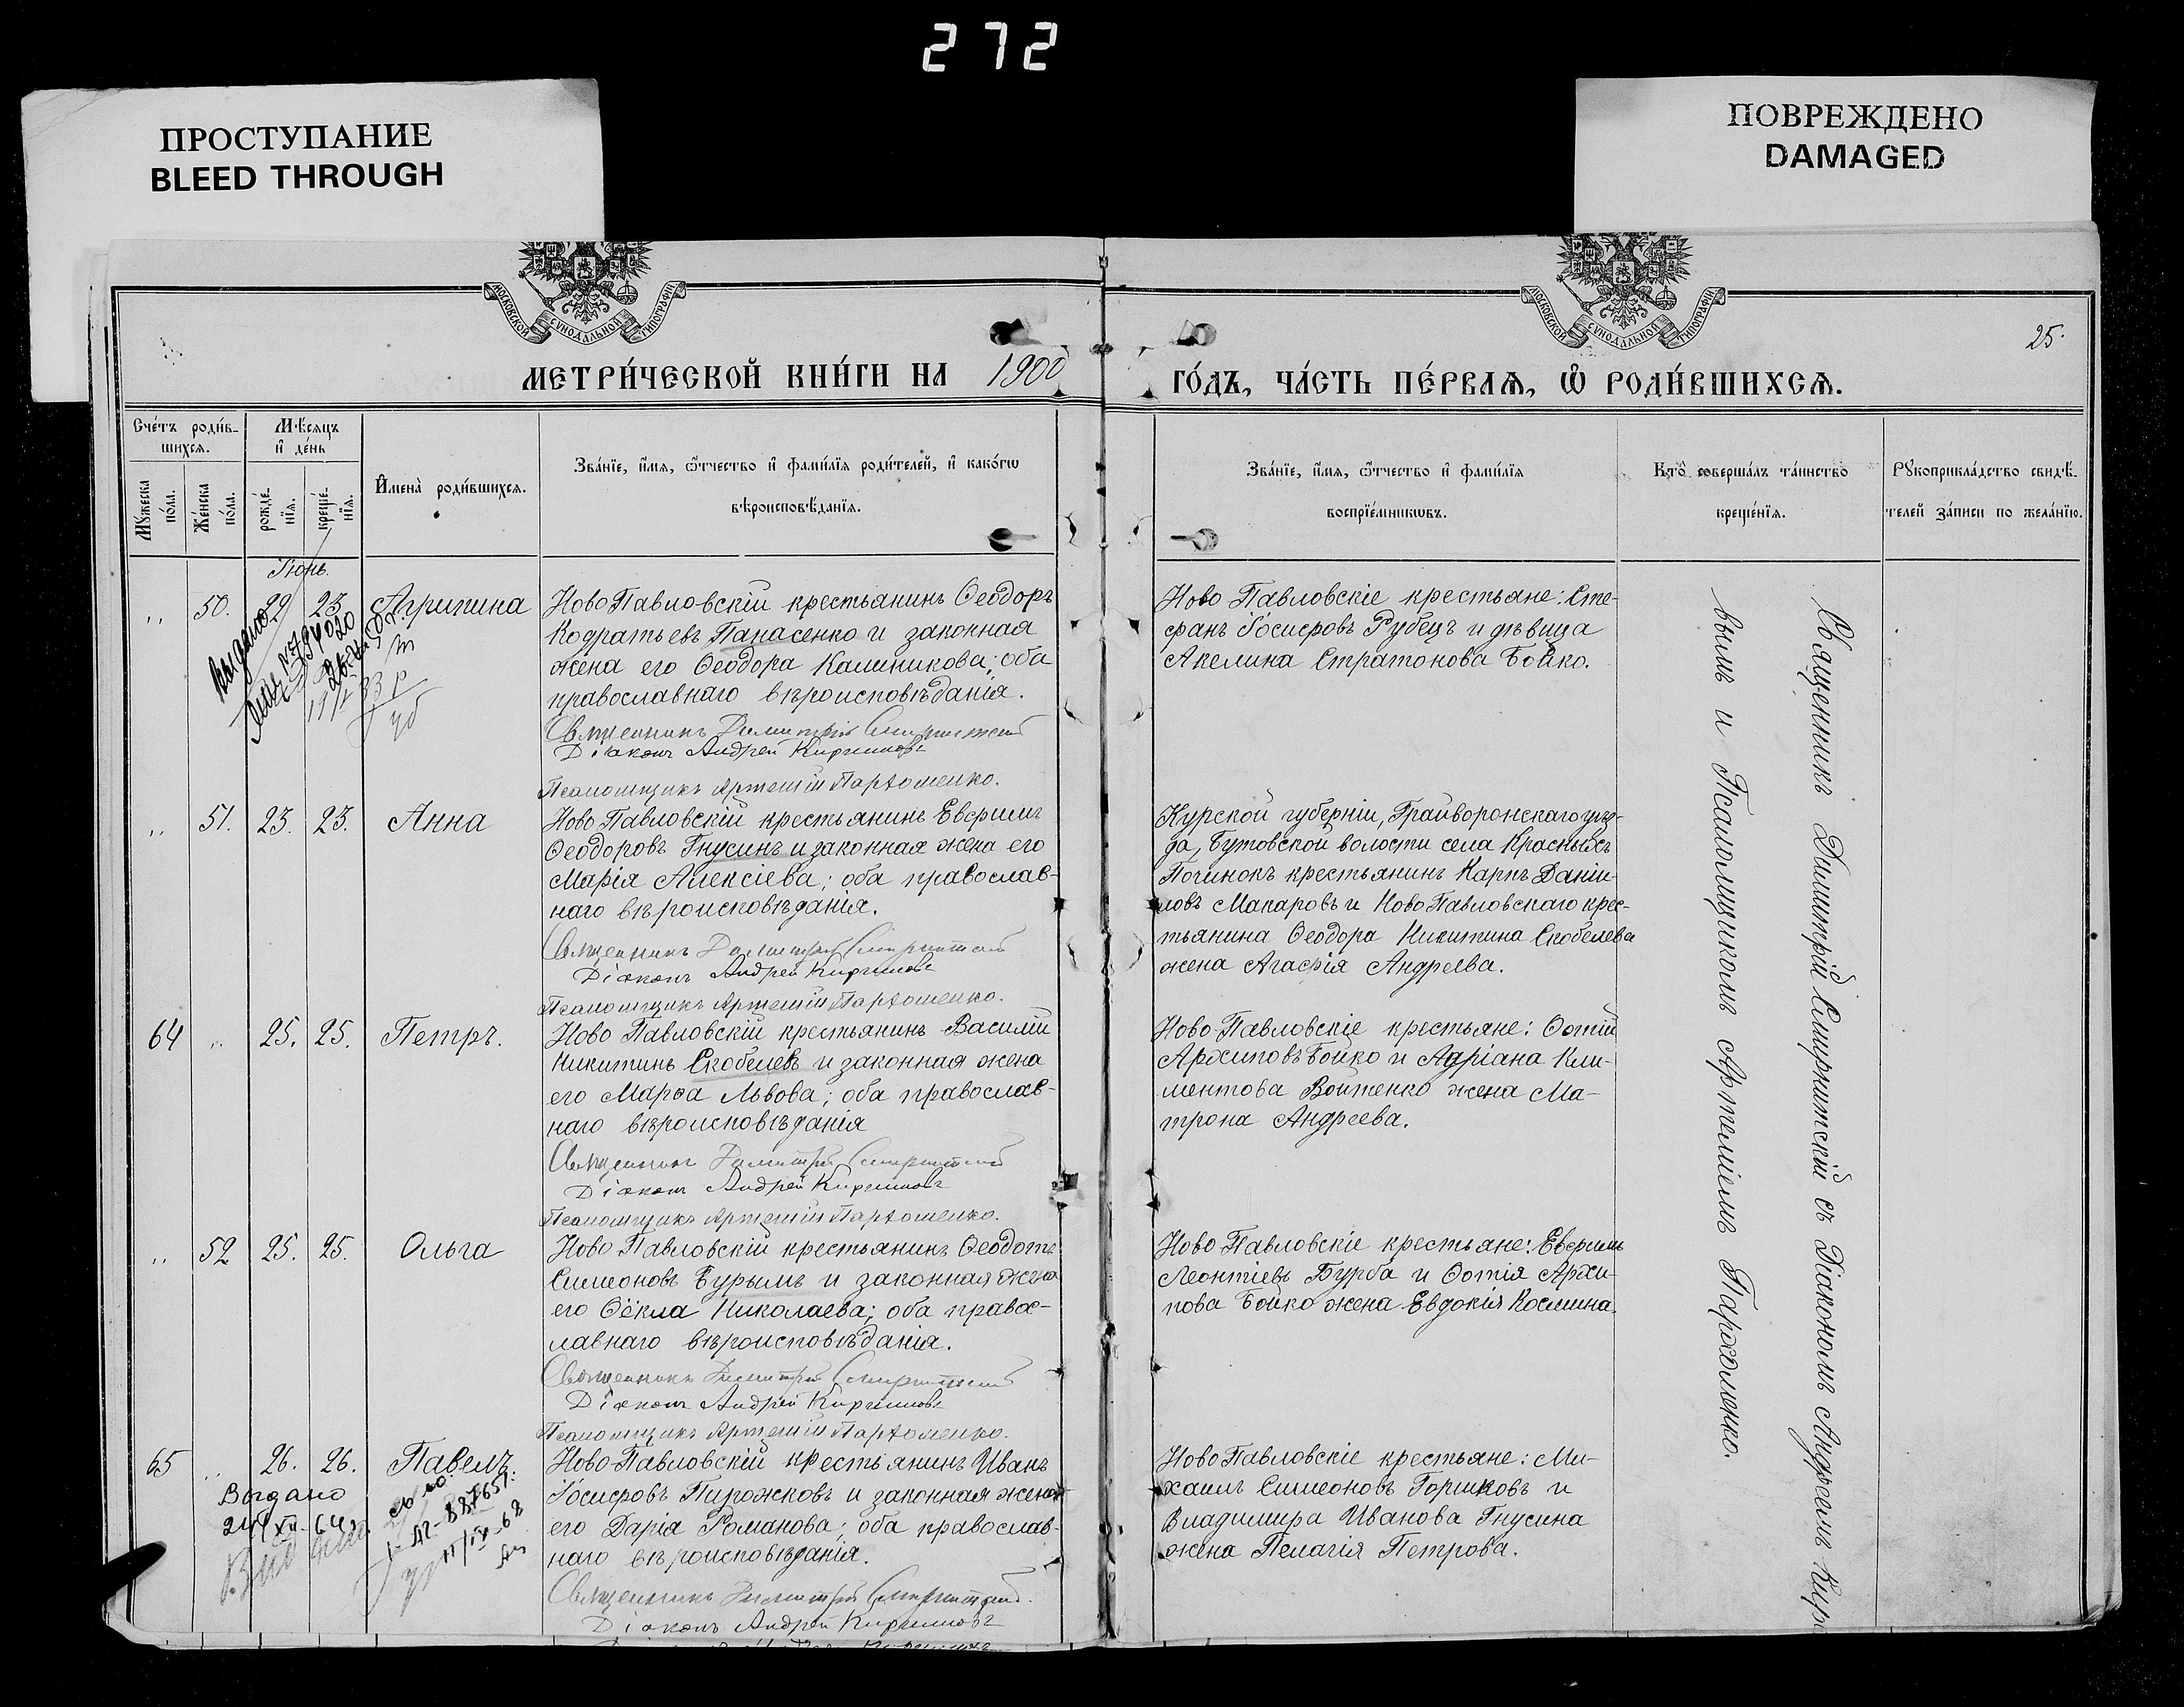 272
ПРОСТУПАНИЕ
BLEED THROUGH
ПОВРЕЖДЕНО
DAMAGED
МОСКОВСКОЙ СѴНОДАЛЬНОЙ ТИПОГРАФІИ
МОСКОВСКОЙ СѴНОДАЛЬНОЙ ТИПОГРАФІИ
25.
МЕТРИ́ЧЕСКОЙ КНИ́ГИ НА 1900
ГО́ДЪ, ЧА́СТЬ ПЕ́РВАѦ, Ѿ РОДИ́ВШИХСѦ.
Сче́тъ роди́в-
шихсѧ.
Мꙋ́жеска
по́ла.
Же́нска
по́ла.
Мѣ́сяцъ
и҆ де́нь
рожде́-
нїѧ.
креще́-
нїѧ.
И҆мена̀ роди́вшихсѧ.
Зва́нїе, и҆́мѧ, ѻ҆́тчество и҆ фами́лїѧ роди́телей, и҆ како́гѡ
вѣроисповѣ́данїѧ.
Зва́нїе, и҆́мѧ, ѻ҆́тчество и҆ фами́лїѧ
воспрїе́мникѡвъ.
Кто̀ соверша́лъ та́инство
креще́нїѧ.
Рꙋкоприкла́дство свидѣ́-
телей за́писи по жела́нїю.
Іюнь.
„ 50. 22 23 Агрипина
Ново Павловскій крестьянинъ Ѳеодоръ
Кодратьевъ Панасенко и законная
жена его Ѳеодора Калиникова; оба
православнаго вѣроисповѣданія.
Священникъ Димитрій Смирнитскій
Діаконъ Андрей Кирилловъ
Псаломщикъ Артемій Пархоменко.
Ново Павловскіе крестьяне: Сте-
фанъ Іосифовъ Рубецъ и дѣвица
Акелина Стратонова Бойко.
Выдано
„ 51. 23. 23. Анна
Ново Павловскій крестьянинъ Евфимъ
Ѳеодоровъ Гнусинъ и законная жена его
Марія Алексіева; оба православ-
наго вѣроисповѣданія.
Священникъ Димитрій Смирнитскій
Діаконъ Андрей Кирилловъ
Псаломщикъ Артемій Пархоменко.
Курской губерніи, Грайворонскаго уѣз-
да, Бутовской волости села Красныхъ
Починокъ крестьянинъ Карпъ Даніи-
ловъ Макаровъ и Ново Павловскаго крес-
тьянина Ѳеодора Никитина Скобелева
жена Агафія Андреева.
64 „ 25. 25. Петръ.
Ново Павловскій крестьянинъ Василій
Никитинъ Скобелевъ и законная жена
его Марѳа Львова; оба православ-
наго вѣроисповѣданія
Священникъ Димитрій Смирнитскій
Діаконъ Андрей Кирилловъ
Псаломщикъ Артемій Пархоменко.
Ново-Павловскіе крестьяне: Фотій
Архиповъ Бойко и Адріана Кли-
ментова Войтенко жена Ма-
трона Андреева.
„ 52 25. 25. Ольга
Ново Павловскій крестьянинъ Ѳеодотъ
Симеоновъ Бурымъ и законная жена
его Ѳёкла Николаева; оба правос-
лавнаго вѣроисповѣданія.
Священникъ Димитрій Смирнитскій
Діаконъ Андрей Кирилловъ
Псаломщикъ Артемій Пархоменко.
Ново Павловскіе крестьяне: Евфимъ
Леонтіевъ Бурба и Фотія Архи-
пова Бойко жена Евдокія Космина.
65 „ 26. 26. Павелъ
Ново Павловскій крестьянинъ Иванъ
Іосифовъ Пирожковъ и законная жена
его Дарія Романова; оба православ-
наго вѣроисповѣданія.
Священникъ Димитрій Смирнитскій.
Діаконъ Андрей Кирилловъ
Ново Павловскіе крестьяне: Ми-
хаилъ Симеоновъ Горшковъ и
Владимира Иванова Гнусина
жена Пелагія Петрова.
Выдано
Священникъ Димитрій Смирнитскій съ Діакономъ Андреемъ Кирил-
ловымъ и Псаломщикомъ Артеміемъ Пархоменко.